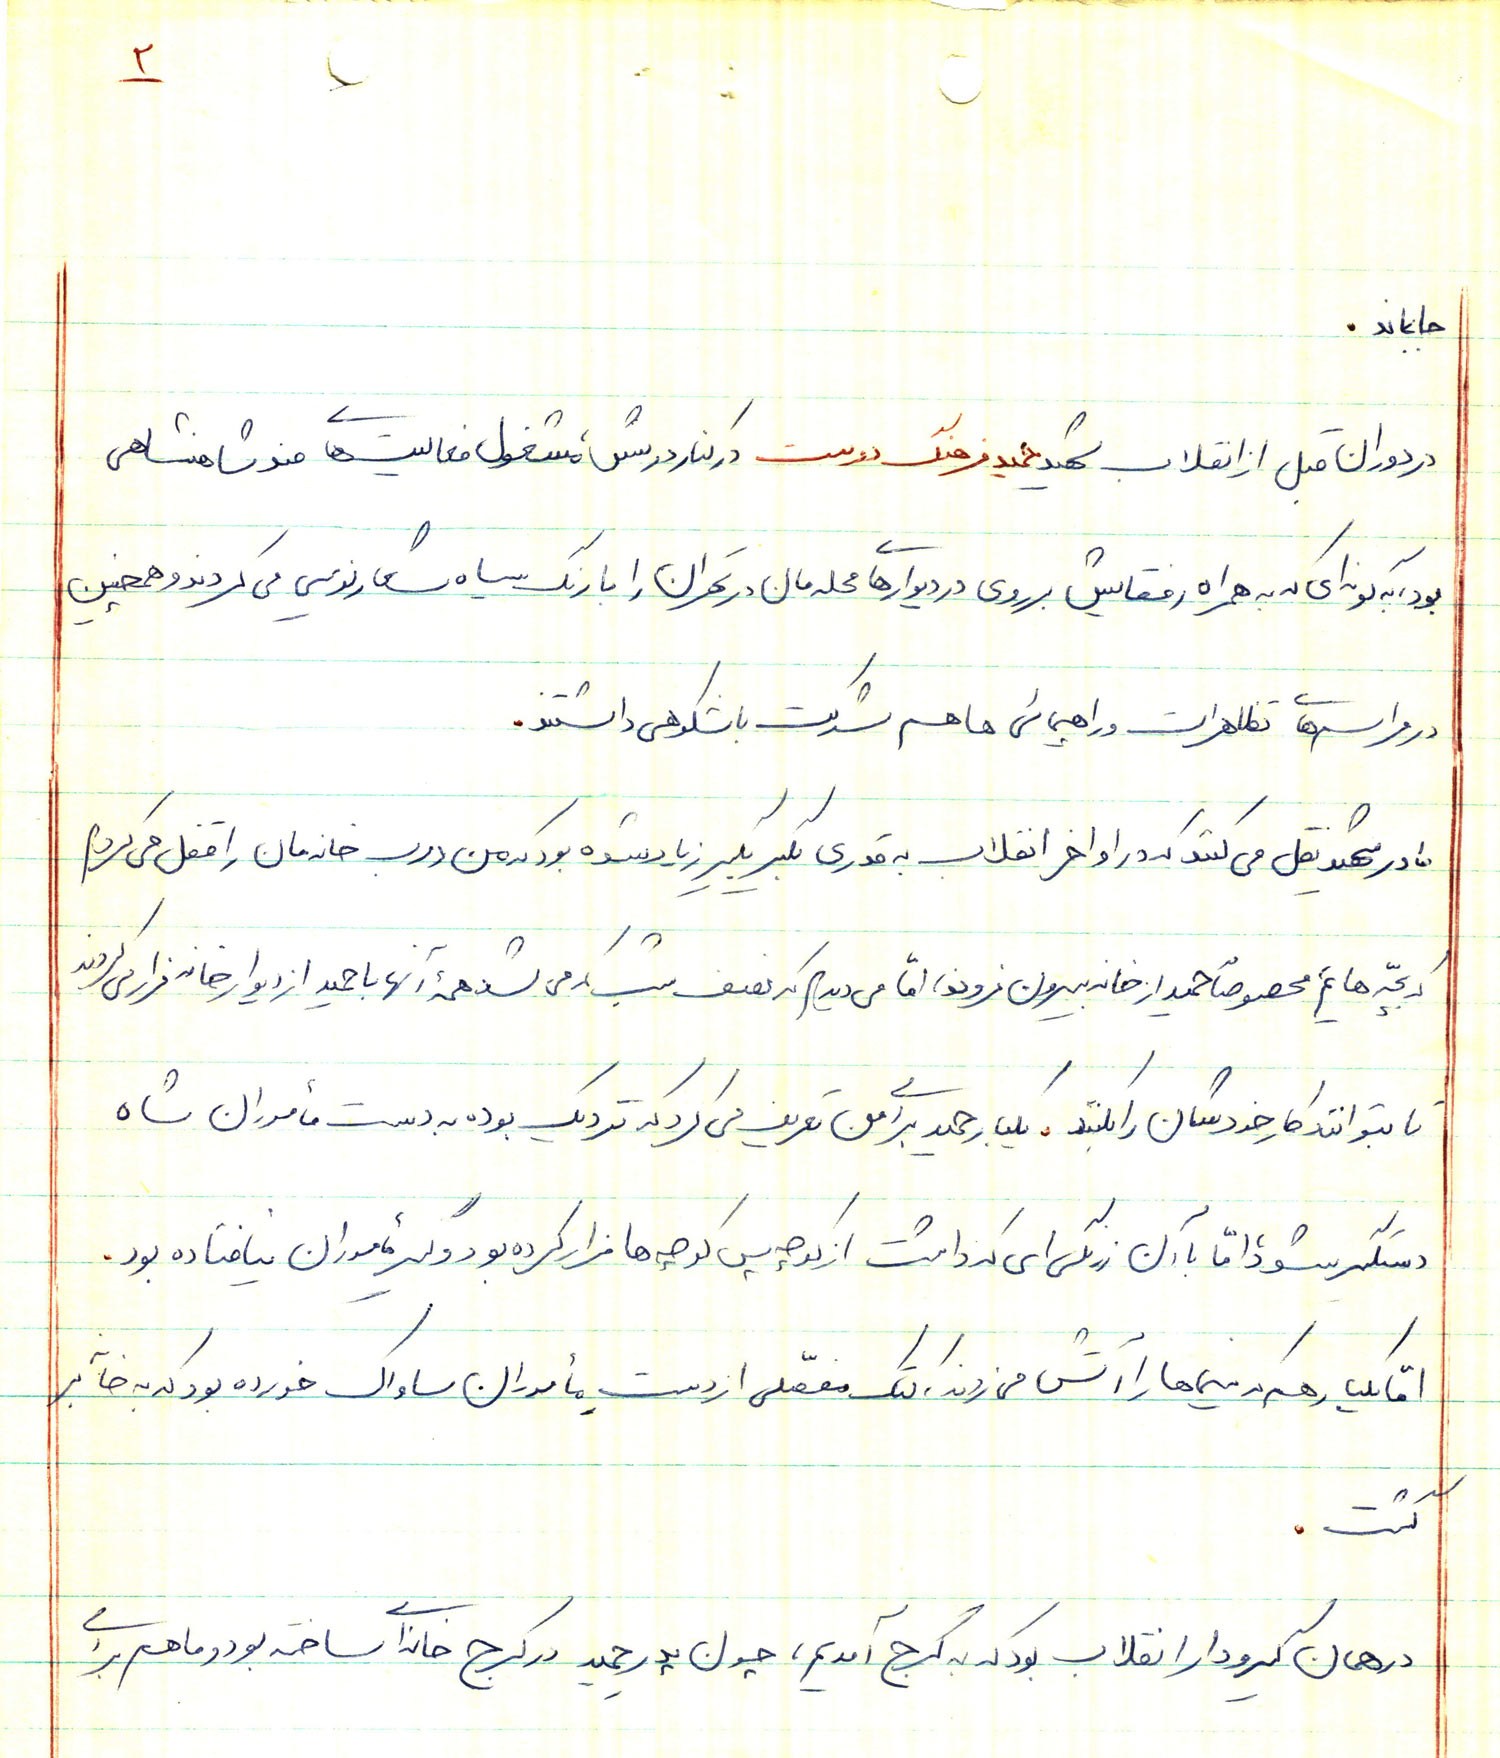 ۲
جا بماند.
در دوران قبل از انقلاب شهید حمید فرهنگ دوست در کنار درسش، مشغول فعالیت‌های ضد شاهنشاهی
بود، به گونه‌ای که به همراه رفقایش بر روی در دیوارهای محله‌مان در تهران را با رنگ سیاه شعارنویسی می‌کردند و همچنین
در مراسم‌های تظاهرات و راهپیمائی‌ها هم شرکت باشکوهی داشتند.
مادر شهید نقل می‌کنند که در اواخر انقلاب به قدری بگیر بگیر زیاد شده بود که من درب خانه‌مان را قفل می‌کردم
که بچّه‌هایم مخصوصاً حمید از خانه بیرون نروند، امّا می‌دیدم که نصف شب که می‌شد همهٔ آنها با حمید از دیوار خانه فرار می‌کردند
تا بتوانند کار خودشان را بکنند. یکبار حمید برای من تعریف می‌کرد که نزدیک بوده به دست مأموران شاه
دستگیر شود، امّا با آن زرنگی‌ای که داشت از کوچه پس کوچه‌ها فرار کرده بود و گیر مأموران نیافتاده بود.
امّا یکبار هم که سینماها را آتش می‌زدند، کتک مفصّلی از دست مأموران ساواک خورده بود که به خانه بر
گشت.
در همان گیر و دار انقلاب بود که به کرج آمدیم، چون پدر حمید در کرج خانه‌ای ساخته بود و ما هم برای